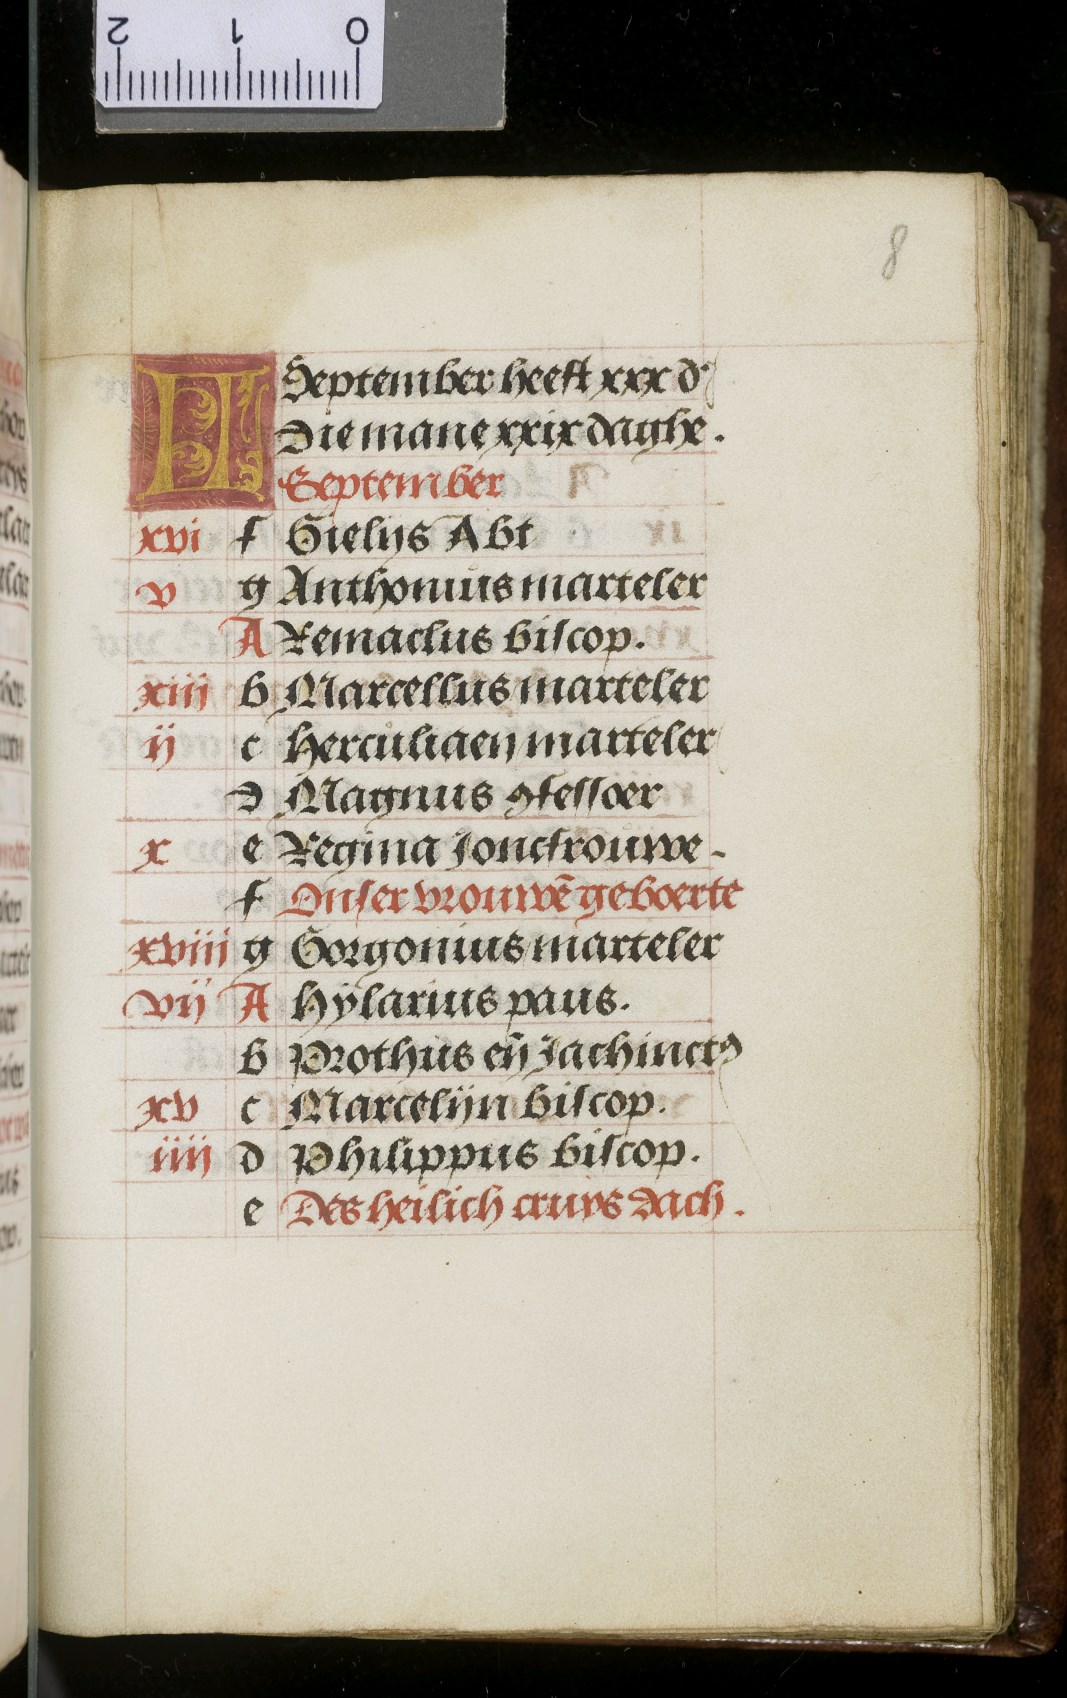 2 1 0
8
KL September heeft xxx d'
Die mane xxix daghe.
September
xvi f Gielijs Abt
v g Anthonius marteler
A Remaclus biscop.
xiij b Marcellus marteler
ij c Herculiaen marteler
d Magnus ꝯfessoer
x e Regina Joncfrouwe.
f Onser vrouwē geboerte
xviij g Gorgonius marteler
vij A Hÿlarius paus.
b Prothus eñ Jachinctꝯ
xv c Marcelijn biscop.
iiij d Philippus biscop.
e Des heilich cruys dach.